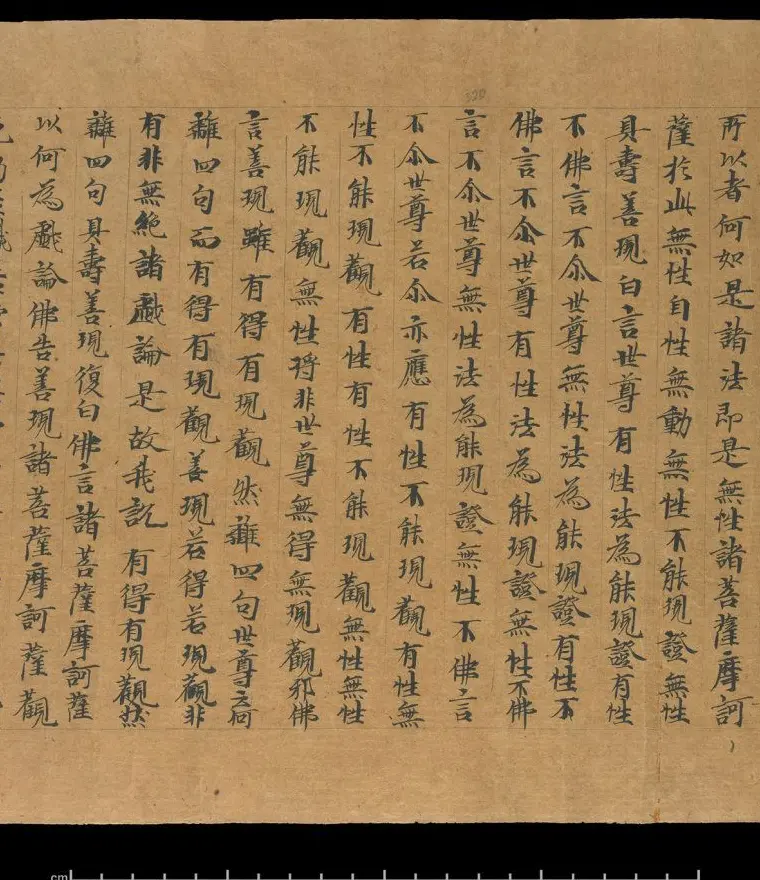 320
所以者何如是諸法即是無性諸菩薩摩訶
薩於此無性自性無動無性不能現證無性
具壽善現白言世尊有性法為能現證有性
不佛言不尒世尊無性法為能現證有性不
佛言不尒世尊有性法為能現證無性不佛
言不尒世尊無性法為能現證無性不佛言
不尒世尊若尒亦應有性不能現觀有性無
性不能現觀有性有性不能現觀無性無性
不能現觀無性將非世尊無得無現觀耶佛
言善現雖有得有現觀然離四句世尊云何
離四句而有得有現觀善現若得若現觀非
有非無絕諸戲論是故我說有得有現觀然
離四句具壽善現復白佛言諸菩薩摩訶薩
以何為戲論佛告善現諸菩薩摩訶薩觀
cm